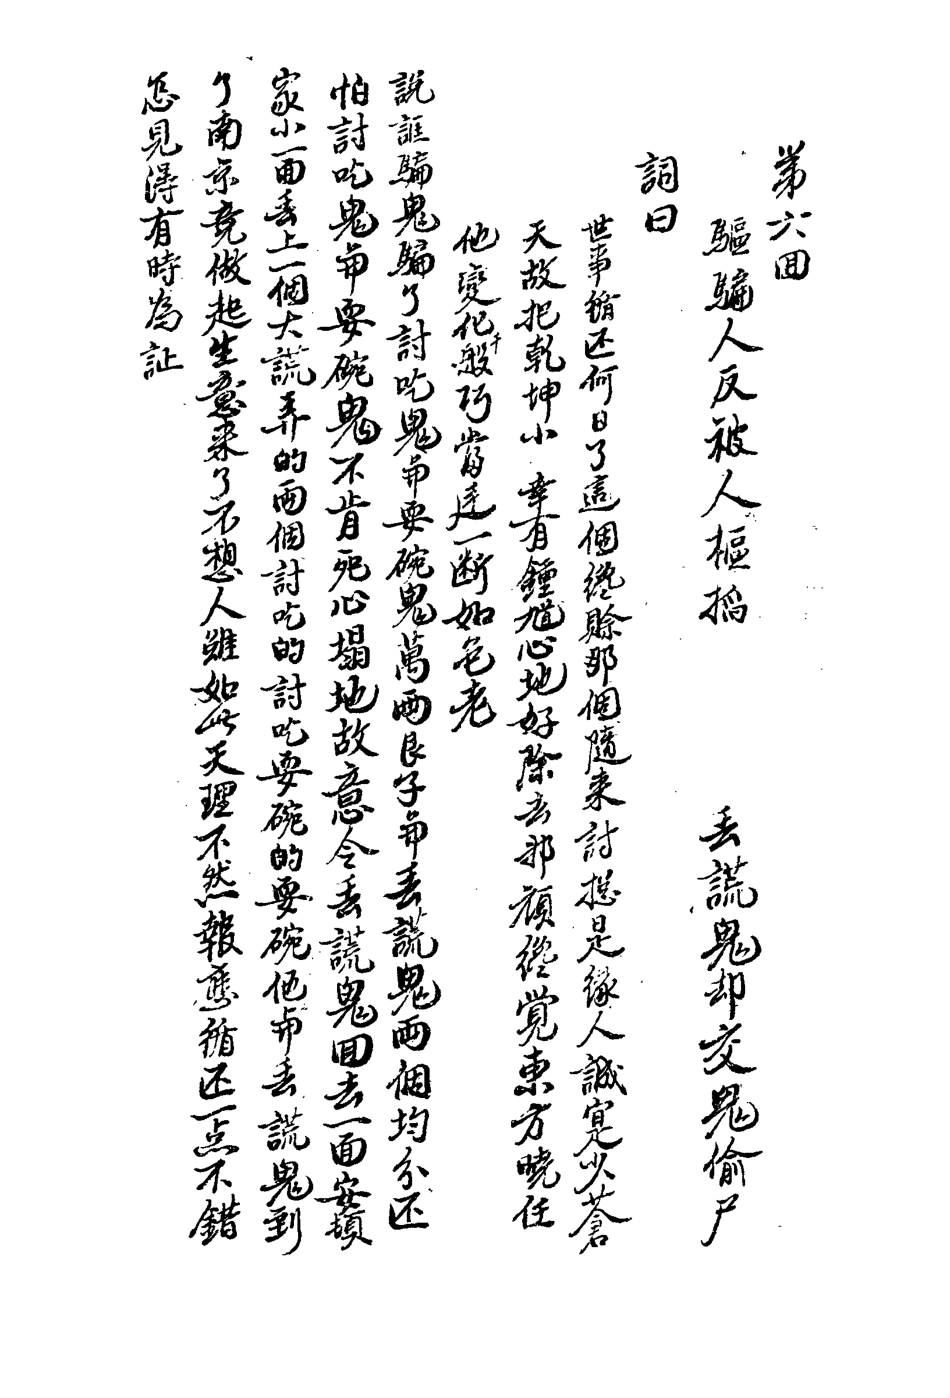 第六回
驅騙人反被人樞搯　丢謊鬼却交鬼偷尸
詞曰
世事循还何日了這個纔賒那個隨来討揔是緣人誠寔少蒼
天故把乾坤小 幸有鍾馗心地好除去邪頑纔覚東方曉任
他變化千般巧當迋一断如包老
説誆騙鬼騙了討吃鬼与耍碗鬼萬両艮子与丢謊鬼両個均分还
怕討吃鬼与耍碗鬼不肯死心塌地故意令丢謊鬼回去一面安頓
家小一面丢上一個大謊弄的両個討吃的討吃耍碗的耍碗他与丢謊鬼到
了南京竟做起生意来了不想人雖如此天理不然報應循还一点不錯
怎見得有時為証